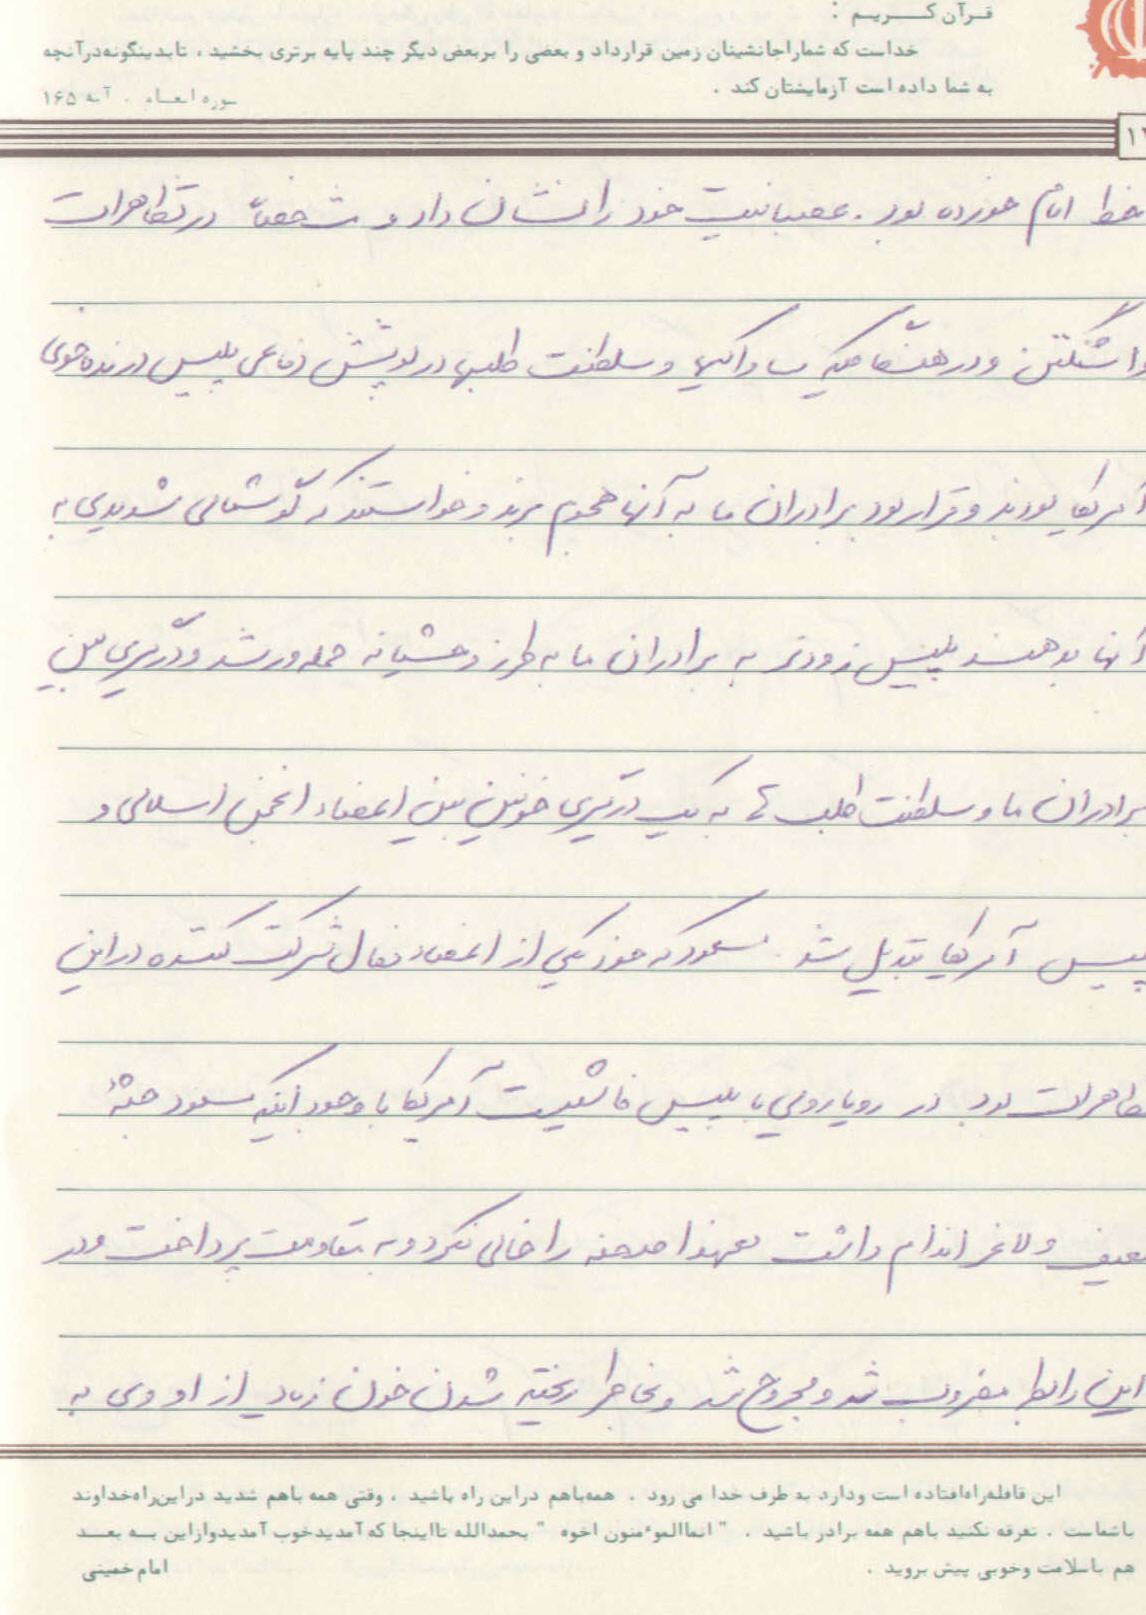 قرآن کـــریـم :
خداست که شمارا جانشینان زمین قرار داد و بعضی را بر بعض دیگر چند پایه برتری بخشید ، تا بدینگونه در آنچه
به شما داده است آزمایشتان کند .
سوره انعـام . آیه ۱۶۵
خط امام خورده بود . عصبانیت خود را نشان داد و شخصاً در تظاهرات
واشنگتن و در هنگامیکه ساواکیها و سلطنت طلبها در پوشش دفاعی پلیس درنده خوی
آمریکا بودند و قرار بود برادران ما به آنها هجوم برند و خواستند که گوشمالی شدیدی به
آنها بدهند پلیس زودتر به برادران ما به طرز وحشیانه حمله ور شد و درگیری بین
برادران ما و سلطنت طلب ها به یک درگیری خونین بین اعضاء انجمن اسلامی و
پلیس آمریکا تبدیل شد . مسعود که خود یکی از اعضاء فعال شرکت کننده در این
تظاهرات بود در رویارویی با پلیس فاشیست آمریکا با وجود اینکه مسعود جثهٔ
ضعیف و لاغر اندام داشت معهذا صحنه را خالی نکرد و به مقاومت پرداخت و در
این رابطه مضروب شد و مجروح شد و بخاطر ریخته شدن خون زیاد از او وی به
این قافله راه افتاده است و دارد به طرف خدا می رود . همه باهم در این راه باشید ، وقتی همه باهم شدید در این راه خداوند
باشماست . تفرقه نکنید باهم همه برادر باشید . " انما الموٴمنون اخوه " بحمدالله تا اینجا که آمدید خوب آمدید و از این بـه بعـد
هم با سلامت و خوبی پیش بروید .
امام خمینی